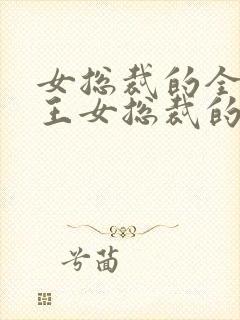 女总裁的全
王女总裁的
兮茵